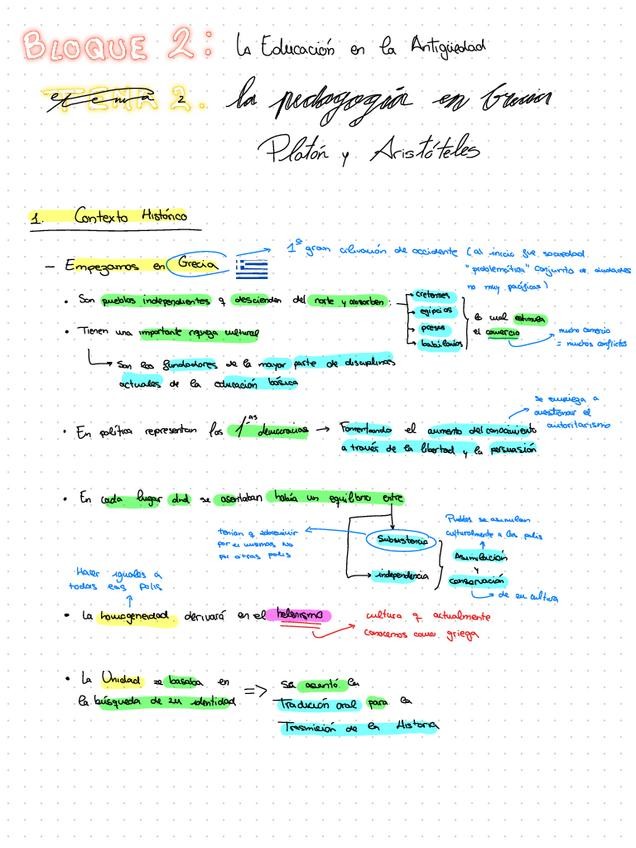 BLOQUE 2: La Educación en la Antigüedad
TEMA 2. la pedagogía en Grecia
Platón y Aristóteles
1. Contexto Histórico
1ª gran civilización de occidente (al inicio fue sociedad
— Empezamos en Grecia
"problemática" conjunto de ciudades
no muy pacíficas)
• Son pueblos independientes q descienden del norte y absorben:
cretenses
egipcios
persas
babilonios
lo cual estimula
el comercio
mucho comercio
= muchos conflictos
• Tienen una importante riqueza cultural
Son los fundadores de la mayor parte de disciplinas
actuales de la educación básica
se empieza a
cuestionar el
autoritarismo
• En política representan las 1ªˢ democracias → Fomentando el aumento del conocimiento
a través de la libertad y la persuasión
• En cada lugar dnd se asentaban había un equilibrio entre
tenían q sobrevivir
por si mismos no
por otras polis
Subsistencia
independencia
Pueblos se asimilan
culturalmente a las polis
Asimilación
y
conservación
de su cultura
Hacer iguales a
todas esas polis
• La homogeneidad derivará en el helenismo
cultura q actualmente
conocemos como griega
• La Unidad se basaba en
la búsqueda de su identidad
=> se asentó la
Tradición oral para la
Trasmisión de la Historia